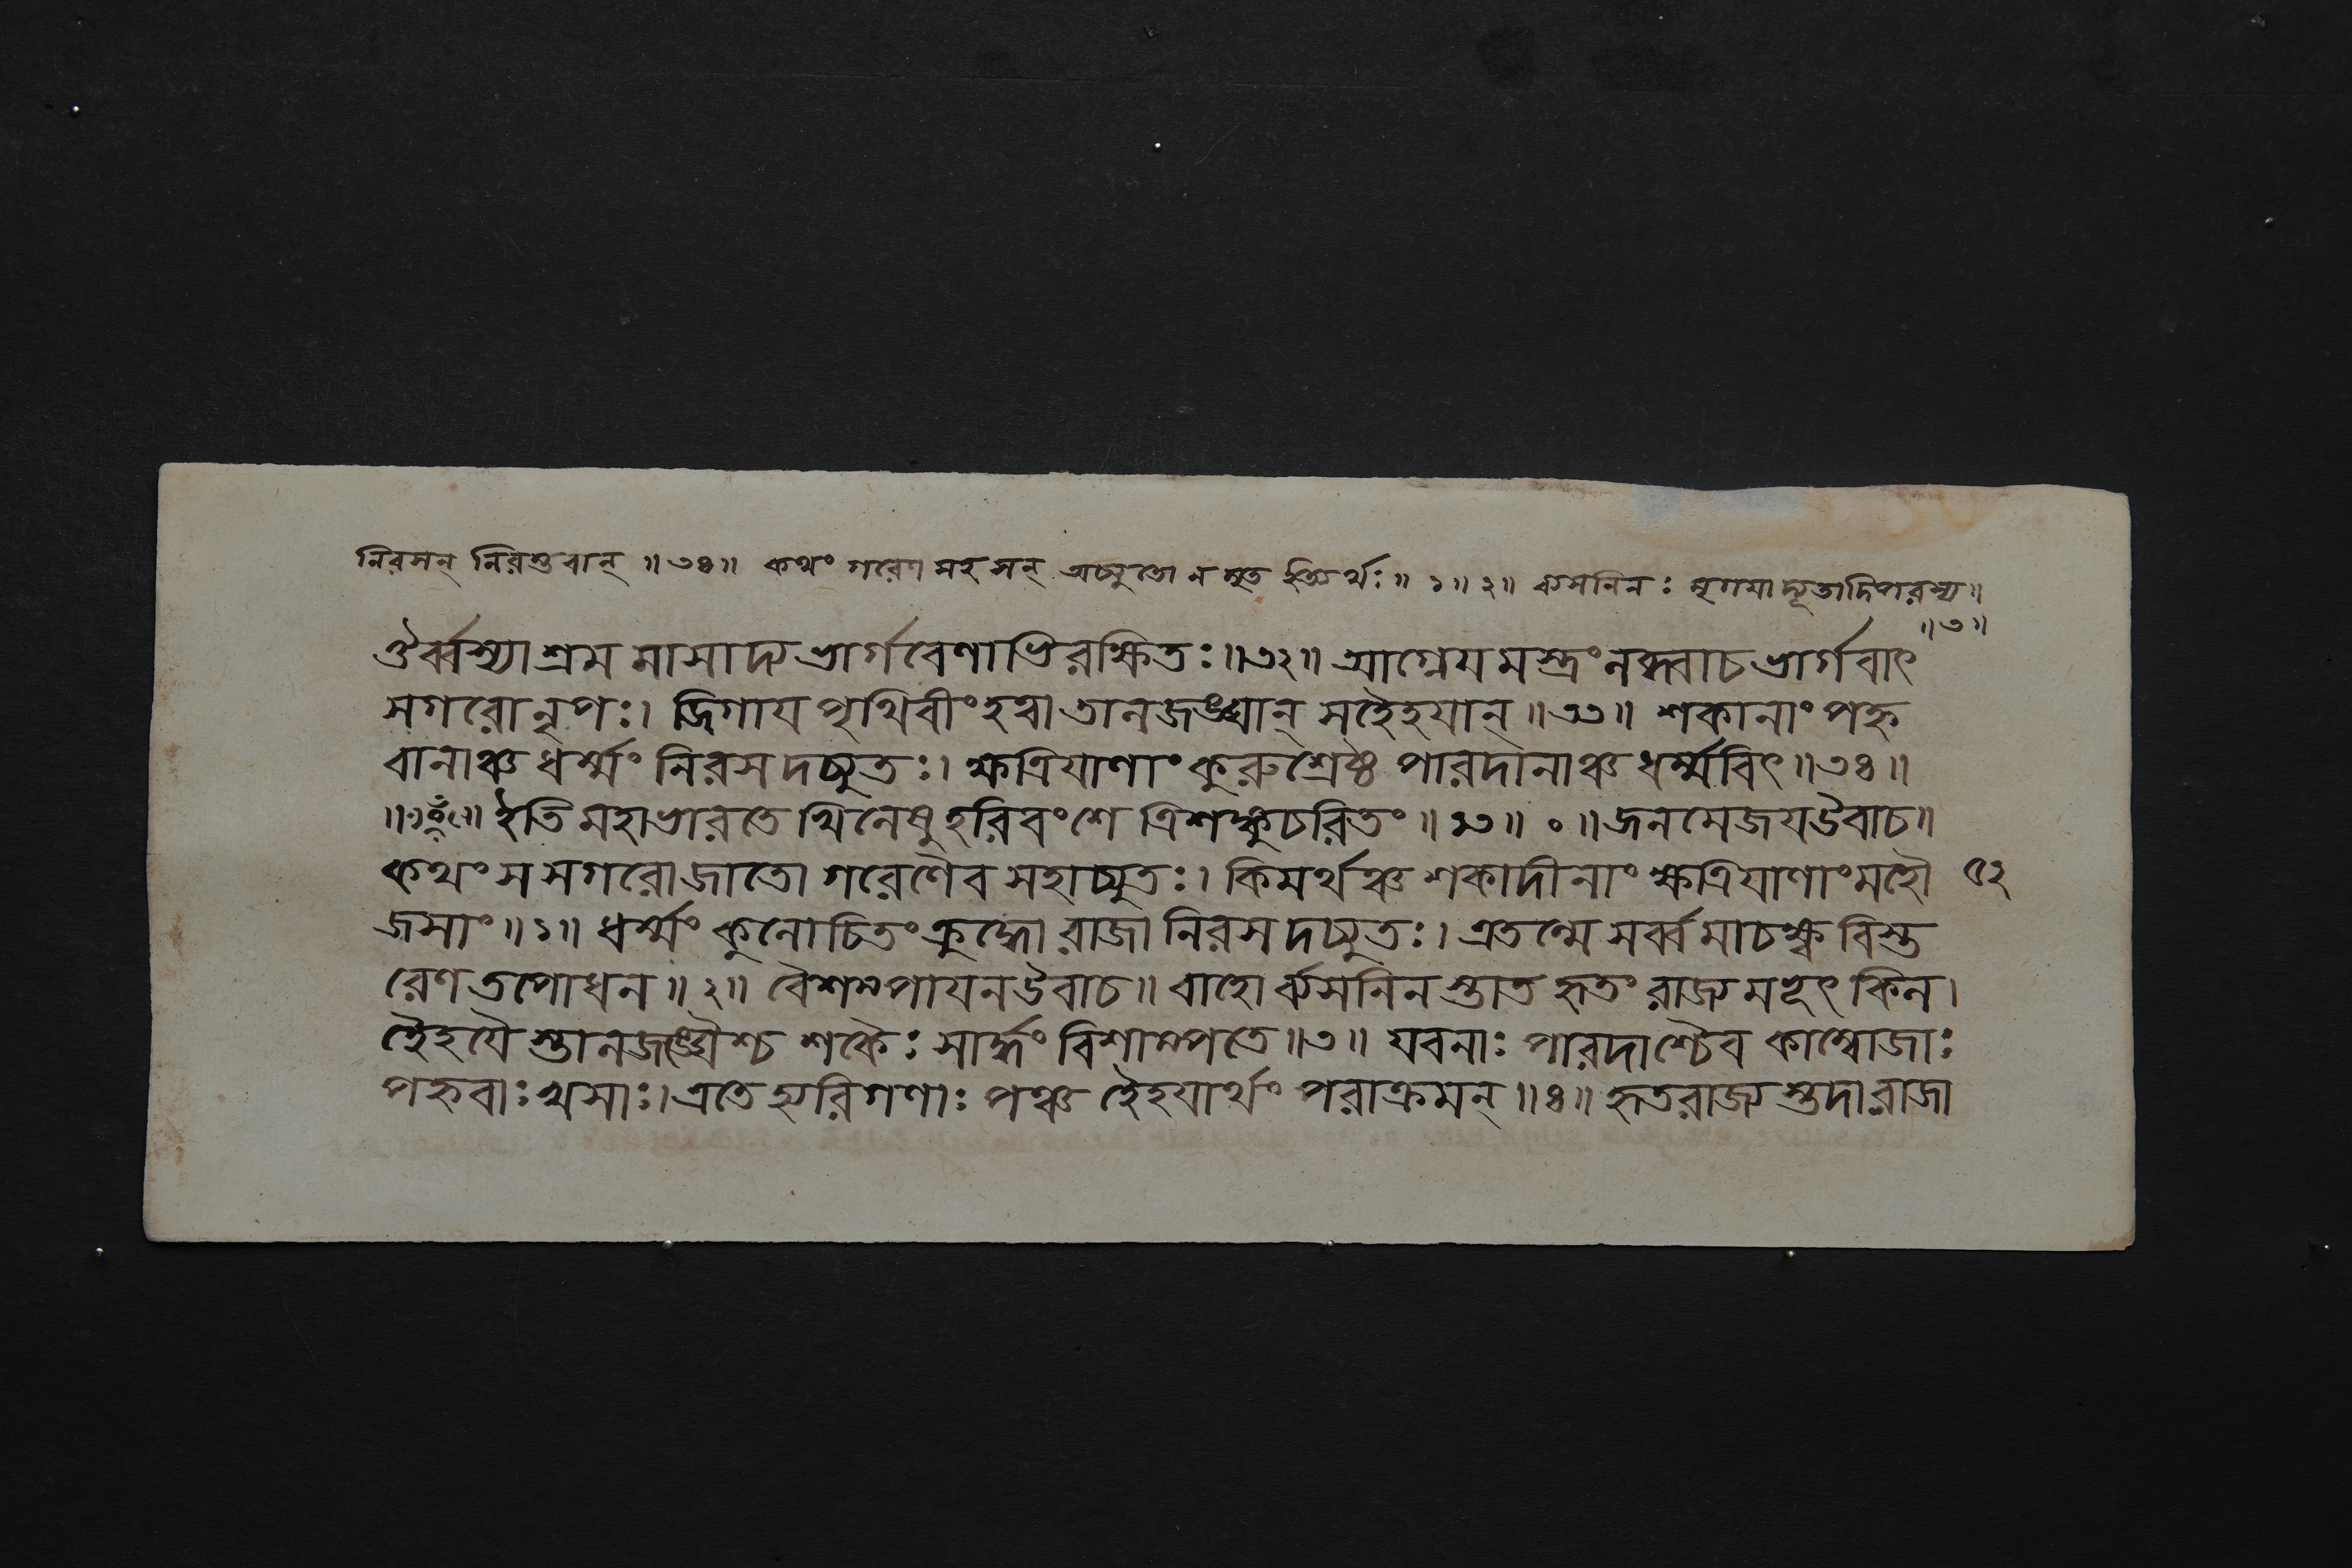 নিরসন্ নিরস্তবান্ ॥ ৩৪ ॥ কথং গরেণ সহ সন্ অচ্যুতো ন মৃত ইত্যর্থঃ ॥ ১ ॥ ২ ॥ ব্যসনিনঃ মৃগযাদ্যূতাদিপরস্য ॥
॥ ৩ ॥
ঔর্ব্বস্যাশ্রম মাসাদ্য ভার্গবেণাভিরক্ষিতঃ ॥ ৩২ ॥ আগ্নেয মস্ত্রং লব্ধ্বা চ ভার্গবাৎ
সগরো নৃপঃ । জিগায পৃথিবীং হত্বা তালজঙ্ঘান্ সহৈহযান্ ॥ ৩৩ ॥ শকানাং পহ্ল
বানাঞ্চ ধর্ম্মং নিরস দচ্যুতঃ । ক্ষত্রিযাণাং কুরুশ্রেষ্ঠ পারদানাঞ্চ ধর্ম্মবিৎ ॥ ৩৪ ॥
ইতি মহাভারতে খিলেষু হরিবংশে ত্রিশঙ্কুচরিতং ॥ ১৩ ॥ ০ ॥ জনমেজয উবাচ ॥
কথং স সগরো জাতো গরেণৈব সহাচ্যুতঃ । কিমর্থঞ্চ শকাদীনাং ক্ষত্রিযাণাং মহৌ ৫২
জসাং ॥ ১ ॥ ধর্ম্মং কুলোচিতং ক্রুদ্ধো রাজা নিরস দচ্যুতঃ । এতন্মে সর্ব্ব মাচক্ষ্ব বিস্ত
রেণ তপোধন ॥ ২ ॥ বৈশম্পাযন উবাচ ॥ বাহোর্ব্যসনিন স্তাত হৃতং রাজ্য মভূৎ কিল ।
হৈহযৈ স্তালজঙ্ঘৈশ্চ শকৈঃ সার্দ্ধং বিশাম্পতে ॥ ৩ ॥ যবনাঃ পারদাশ্চৈব কাম্বোজাঃ
পহ্লবাঃ খসাঃ । এতে হ্যরিগণাঃ পঞ্চ হৈহযার্থং পরাক্রমন্ ॥ ৪ ॥ হৃতরাজ্য স্তদা রাজা